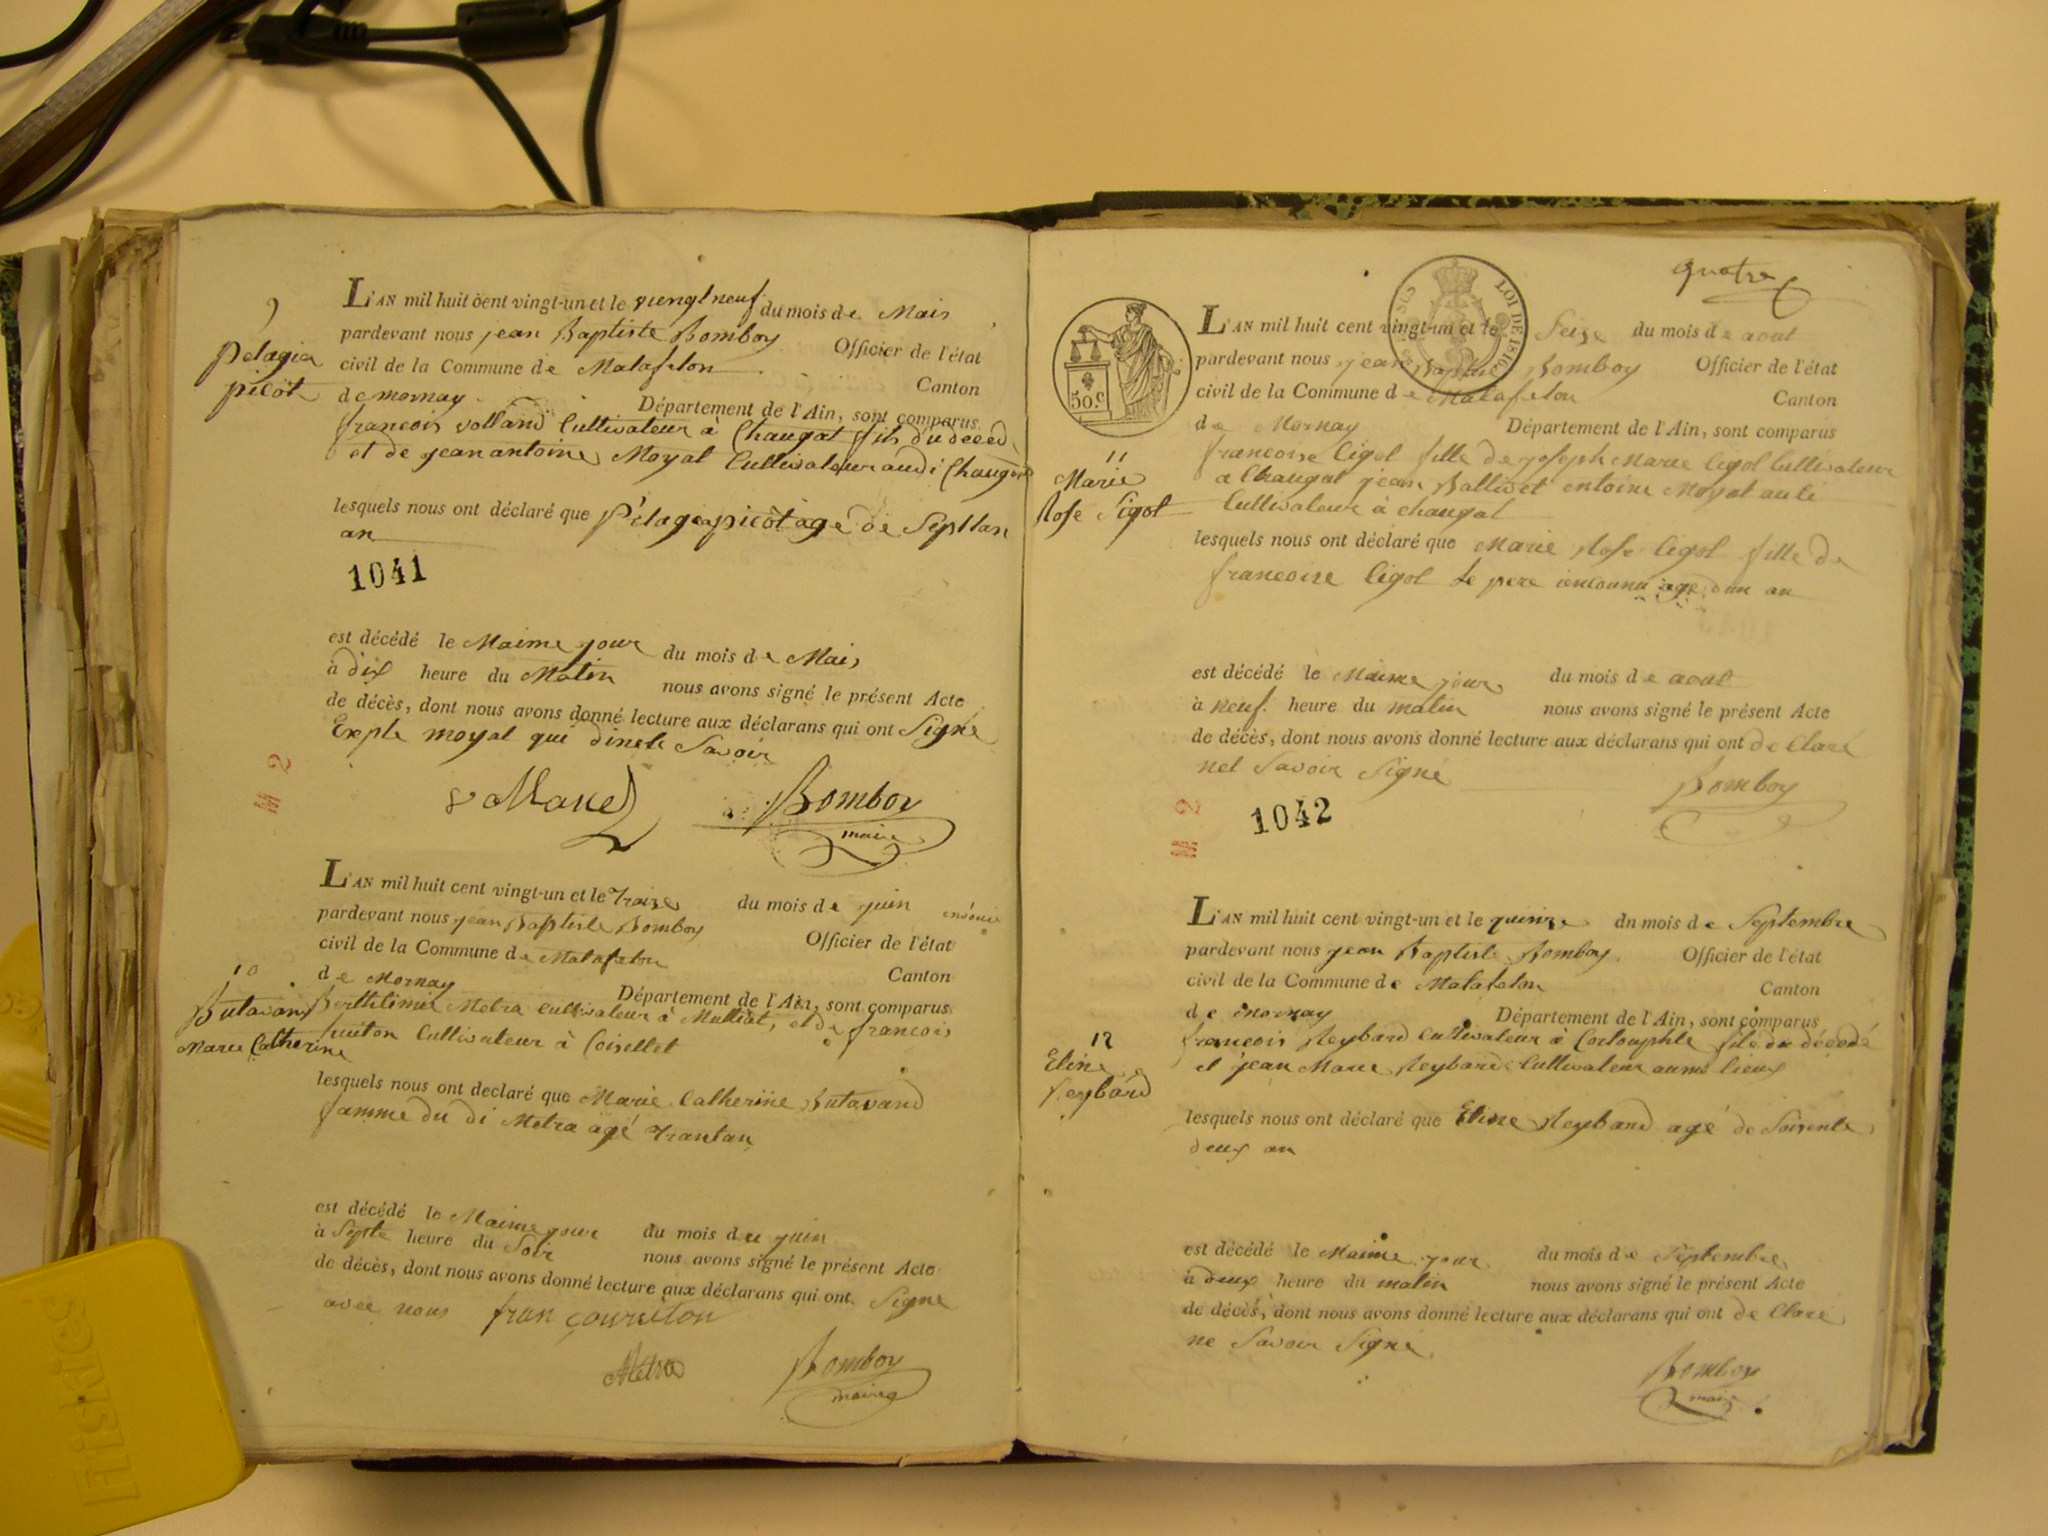 9
Pelagia
picôt
L'AN mil huit cent vingt-un et le vungt neuf du mois de Mais
pardevant nous jean Baptiste Bomboy Officier de l'état
civil de la Commune de Matafelon Canton
de mornay Département de l'Ain, sont comparus
francois volland Cultivateur à Chaugat fils du deced
et de jean antoine Moyat Cultivateur audi
lesquels nous ont déclaré que Pélagea picôt agé de Septtan
an
1041
est décédé le Maime jour du mois de Mais
à dix heure du Matin nous avons signé le présent Acte
de décès, dont nous avons donné lecture aux déclarans qui ont Signé
Exple moyat qui dinete Savoir
Bomboy
maire
M 2
10
Butavand
Marie Catherine
L'AN mil huit cent vingt-un et le Traise du mois de juin
pardevant nous jean Baptiste Bomboy Officier de l'état
civil de la Commune de Matafelon Canton
de Mornay Département de l'Ain, sont comparus
Berthlimie Metra Cultivateur à Mulliat, et de francois
Cultivateur à Coisellet
lesquels nous ont declaré que Marie Catherine Butavand
famme du di Metra agé Trantan
est décédé le Maime jour du mois de juin
à Septe heure du Soir nous avons signé le présent Acte
de décès, dont nous avons donné lecture aux déclarans qui ont Signe
avec nous
Metra Bomboy
maire
quatre
LOI DE 1816
50.C
11
Marie
Rose Sigot
L'AN mil huit cent vingt-un et le Seize du mois de aout
pardevant nous jean Baptiste Bomboy Officier de l'état
civil de la Commune de Matafelon Canton
de Mornay Département de l'Ain, sont comparus
francoise Cigot fille de joseph Marie Cigot Cultivateur
a Chaugat jean Ballivet entoine Moyat auti
Cultivateur à chaugat
lesquels nous ont déclaré que Marie Rose Cigot fille de
francoise Cigot Le pere enconnu agé dun an
est décédé le Maime jour du mois de aout
à neuf heure du matin nous avons signé le présent Acte
de décès, dont nous avons donné lecture aux déclarans qui ont de Claré
net Savoir Signé
Bomboy
1042
M 2
12
Etine
Reybard
L'AN mil huit cent vingt-un et le quinze du mois de Septembre
pardevant nous jean Baptiste Bomboy Officier de l'état
civil de la Commune de Matafelon Canton
de Mornay Département de l'Ain, sont comparus
francois Reybard Cultivateur à Corlouphle fils du décédé
et jean Marie Reybard Cultivateur aume lieux
lesquels nous ont déclaré que Etine Reybard agé de Soisente
deux an
est décédé le Maime jour du mois de Septembre
à deux heure du matin nous avons signé le présent Acte
de décès, dont nous avons donné lecture aux déclarans qui ont de Claré
ne Savoir Signé
Bomboy
maire